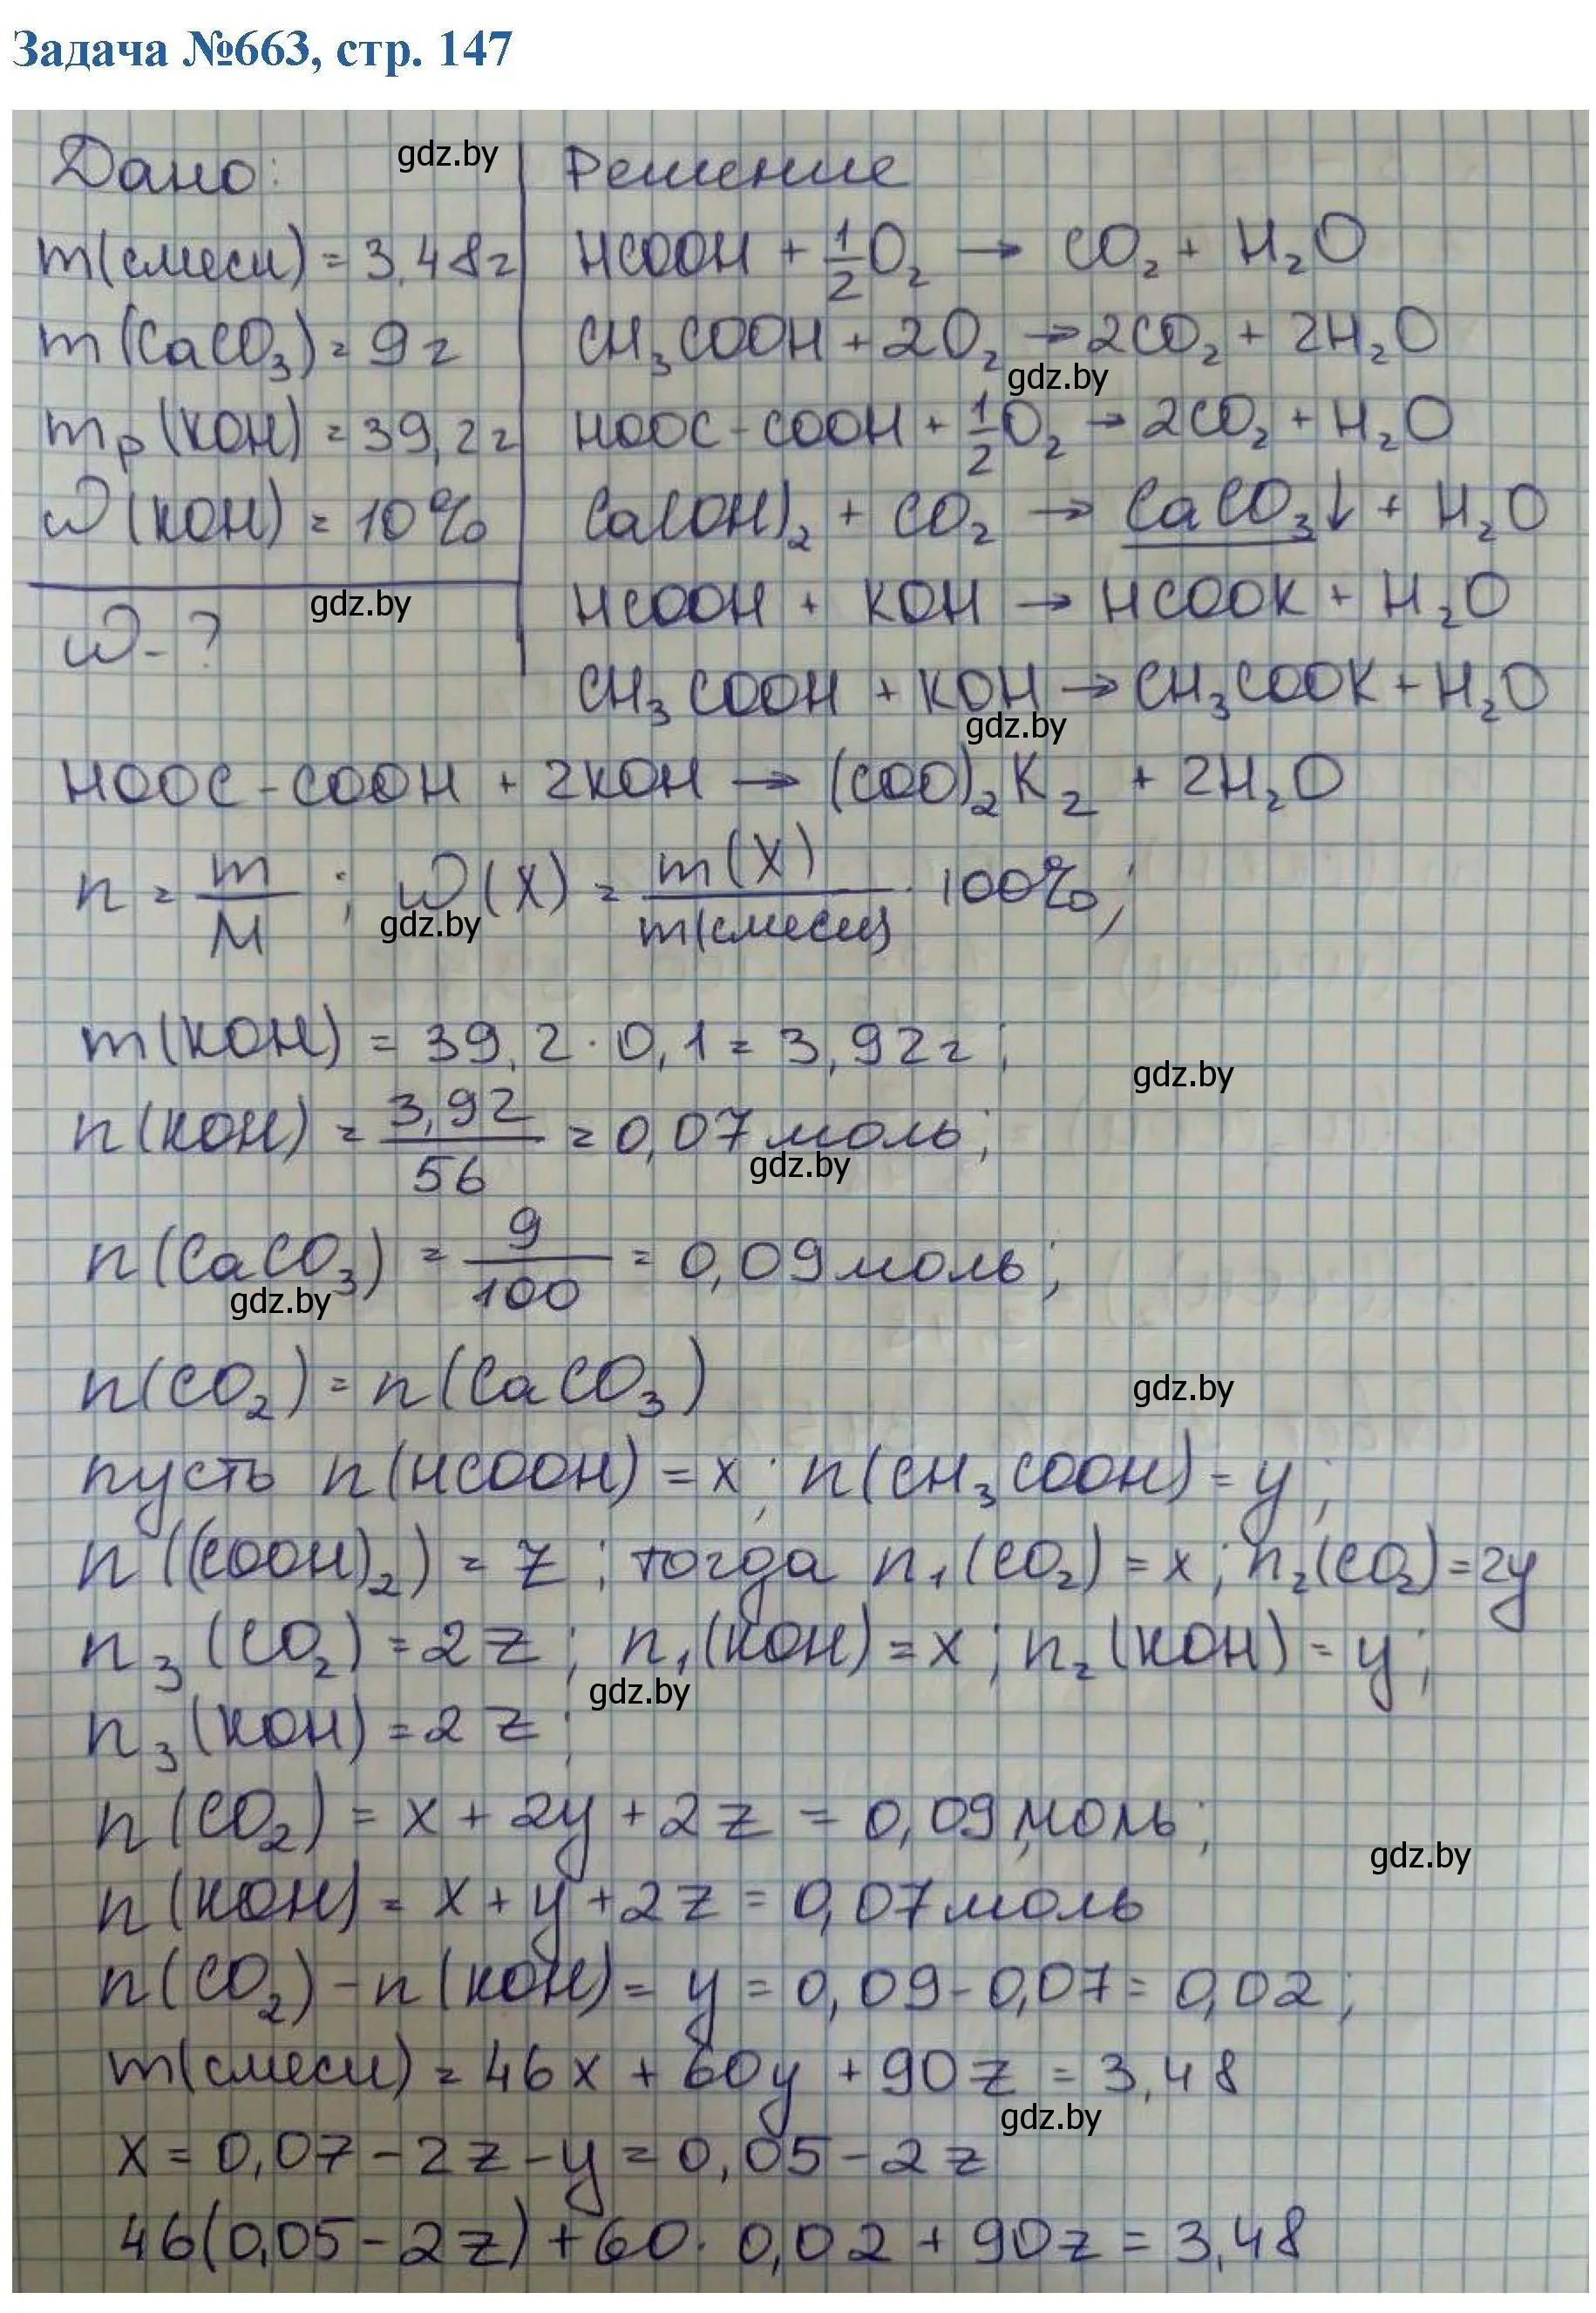 Задача №663, стр. 147
Дано: gdz.by Решение
m(смеси) = 3,48г HCOOH + 1/2 O₂ → CO₂ + H₂O
m(CaCO₃) = 9г CH₃COOH + 2O₂ → 2CO₂ + 2H₂O
gdz.by
mр(KOH) = 39,2г HOOC-COOH + 1/2 O₂ → 2CO₂ + H₂O
ω(KOH) = 10% Ca(OH)₂ + CO₂ → CaCO₃↓ + H₂O
gdz.by HCOOH + KOH → HCOOK + H₂O
ω-?
CH₃COOH + KOH → CH₃COOK + H₂O
gdz.by
HOOC-COOH + 2KOH → (COO)₂K₂ + 2H₂O
n = m/M ; ω(X) = m(X)/m(смеси) · 100%;
gdz.by
m(KOH) = 39,2 · 0,1 = 3,92г;
gdz.by
n(KOH) = 3,92/56 = 0,07 моль;
gdz.by
n(CaCO₃) = 9/100 = 0,09 моль;
gdz.by
n(CO₂) = n(CaCO₃)
gdz.by
пусть n(HCOOH) = x; n(CH₃COOH) = y;
n((COOH)₂) = z; тогда n₁(CO₂) = x; n₂(CO₂) = 2y
n₃(CO₂) = 2z; n₁(KOH) = x; n₂(KOH) = y;
gdz.by
n₃(KOH) = 2z;
n(CO₂) = x + 2y + 2z = 0,09 моль;
gdz.by
n(KOH) = x + y + 2z = 0,07 моль
n(CO₂) - n(KOH) = y = 0,09 - 0,07 = 0,02;
m(смеси) = 46x + 60y + 90z = 3,48
gdz.by
x = 0,07 - 2z - y = 0,05 - 2z
46(0,05 - 2z) + 60 · 0,02 + 90z = 3,48